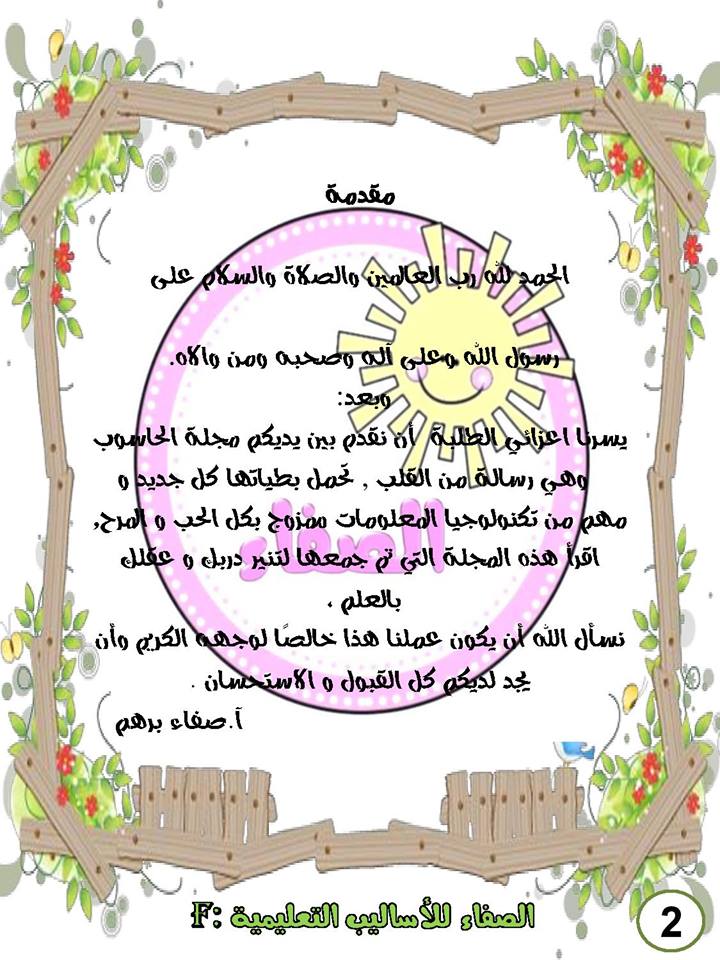 مقدمة
الحمد لله رب العالمين والصلاة والسلام على
رسول الله وعلى آله وصحبه ومن والاه.
وبعد:
يسرنا اعزائي الطلبة أن نقدم بين يديكم مجلة الحاسوب
وهي رسالة من القلب , تحمل بطياتها كل جديد و
مهم من تكنولوجيا المعلومات ممزوج بكل الحب و المرح,
اقرأ هذه المجلة التي تم جمعها لتنير دربك و عقلك
بالعلم ,
نسأل الله أن يكون عملنا هذا خالصًا لوجهه الكريم وأن
يجد لديكم كل القبول و الاستحسان .
أ.صفاء برهم
الصفاء
الصفاء للأساليب التعليمية :F
2